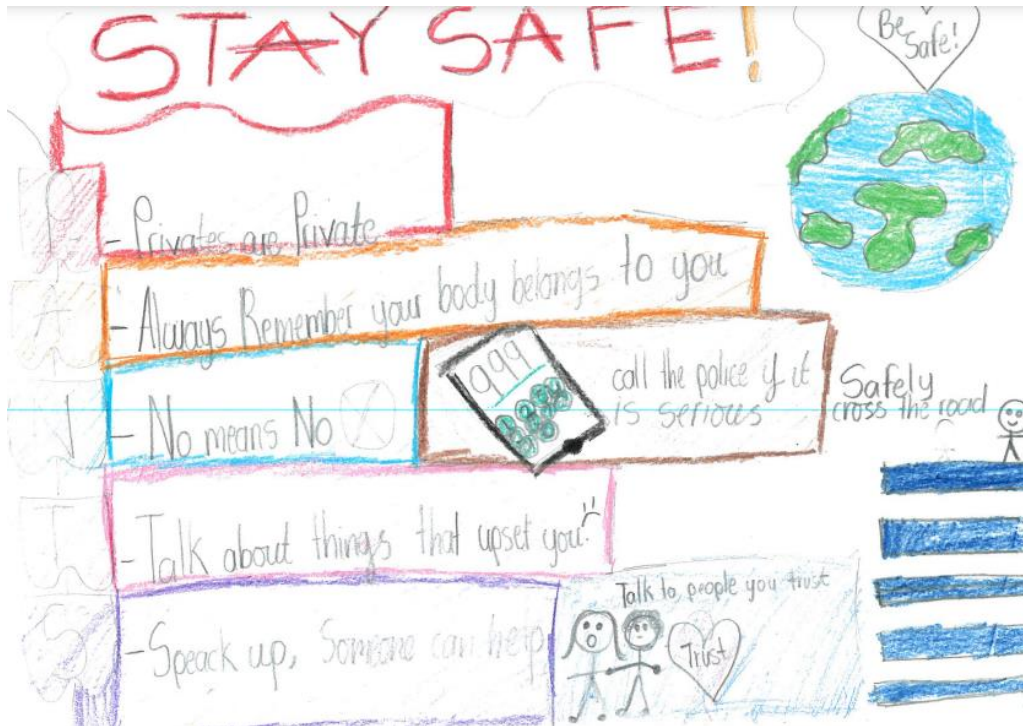 STAY SAFE!
Be
Safe!
P
- Privates are Private
A
- Always Remember your body belongs to you
N
- No means No
999
call the police if it
is serious
Safely
cross the road
T
- Talk about things that upset you
S
- Speack up, Someone can help
Talk to, people you trust
Trust